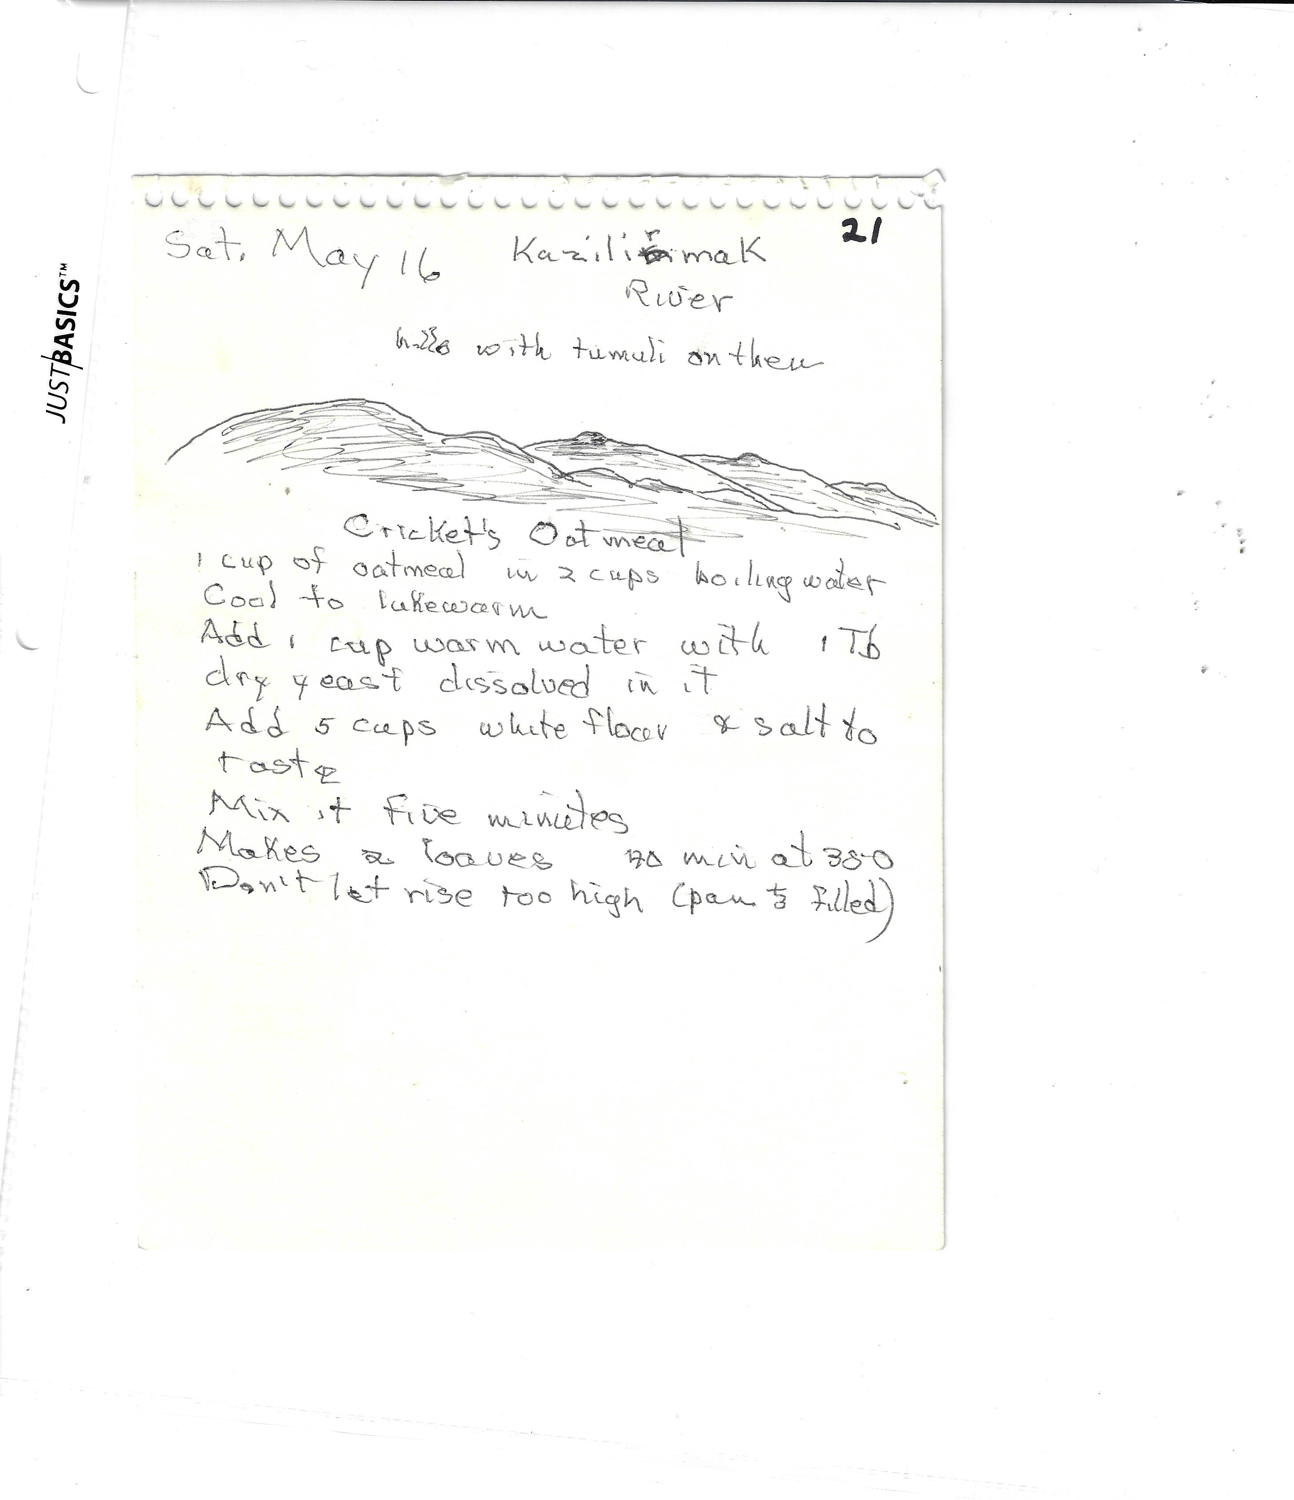 21
Sat. May 16 Kazilirmak
River
hills with tumuli on them
Cricket's Oatmeal
1 cup of oatmeal in 2 cups boiling water
Cool to lukewarm
Add 1 cup warm water with 1 Tb
dry yeast dissolved in it
Add 5 cups white flour & salt to
taste
Mix it five minutes
Makes 2 loaves min at 350
Don't let rise too high (pan filled)
JUSTBASICS™